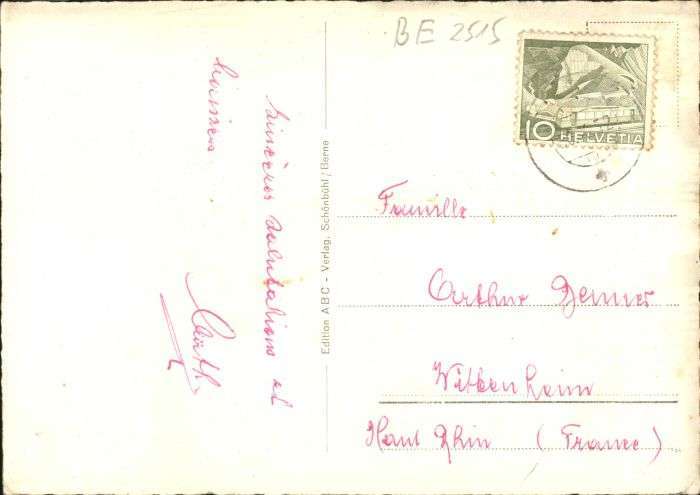 BE 2515
10 HELVETIA
Sincères salutations et
baisers
Edition ABC - Verlag, Schönbühl/Berne
Famille
Arthur
Wittenheim
Haut Rhin (France)